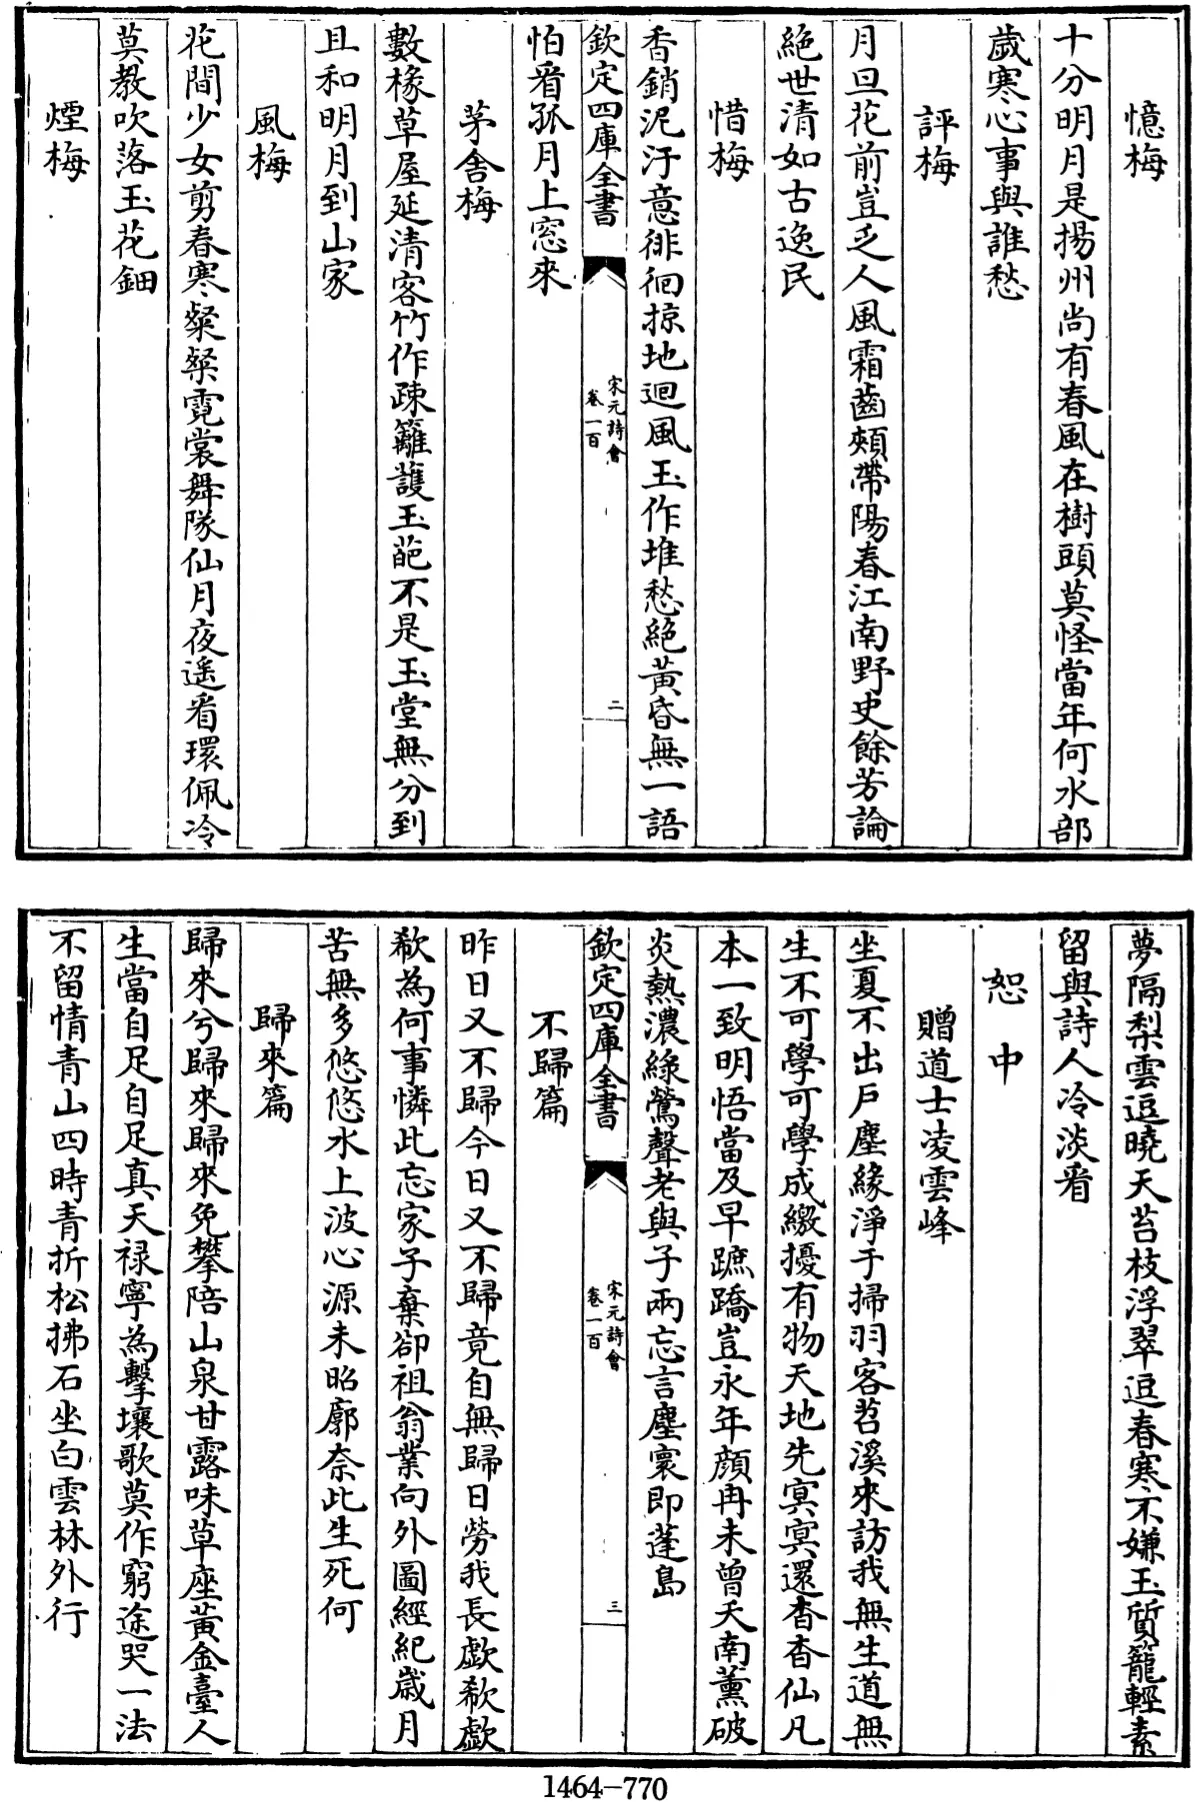 憶梅
十分明月是揚州尚有春風在樹頭莫怪當年何水部
歲寒心事與誰愁
評梅
月旦花前豈乏人風霜齒頰帶陽春江南野史餘芳論
絕世清如古逸民
惜梅
香銷泥汙意徘徊掠地迴風玉作堆愁絕黃昏無一語
欽定四庫全書
宋元詩會
卷一百
二
怕看孤月上窓來
茅舍梅
數椽草屋延清客竹作疎籬護玉葩不是玉堂無分到
且和明月到山家
風梅
花間少女剪春寒粲粲霓裳舞隊仙月夜遥看環佩冷
莫教吹落玉花鈿
煙梅
夢隔梨雲逗曉天苔枝浮翠逗春寒不嫌玉質籠輕素
留與詩人冷淡看
恕中
贈道士凌雲峰
坐夏不出戶塵緣淨于掃羽客苕溪來訪我無生道無
生不可學可學成繳擾有物天地先冥冥還杳杳仙凡
本一致明悟當及早蹠蹻豈永年顔冉未曾夭南薰破
炎熱濃緑鶯聲老與子兩忘言塵寰即蓬島
欽定四庫全書
宋元詩會
卷一百
三
不歸篇
昨日又不歸今日又不歸竟自無歸日勞我長歔欷歔
欷為何事憐此忘家子棄卻祖翁業向外圖經紀歲月
苦無多悠悠水上波心源未昭廓奈此生死何
歸來篇
歸來兮歸來歸來免攀陪山泉甘露味草座黃金臺人
生當自足自足真天禄寧為擊壤歌莫作窮途哭一法
不留情青山四時青折松拂石坐白雲林外行
1464-770